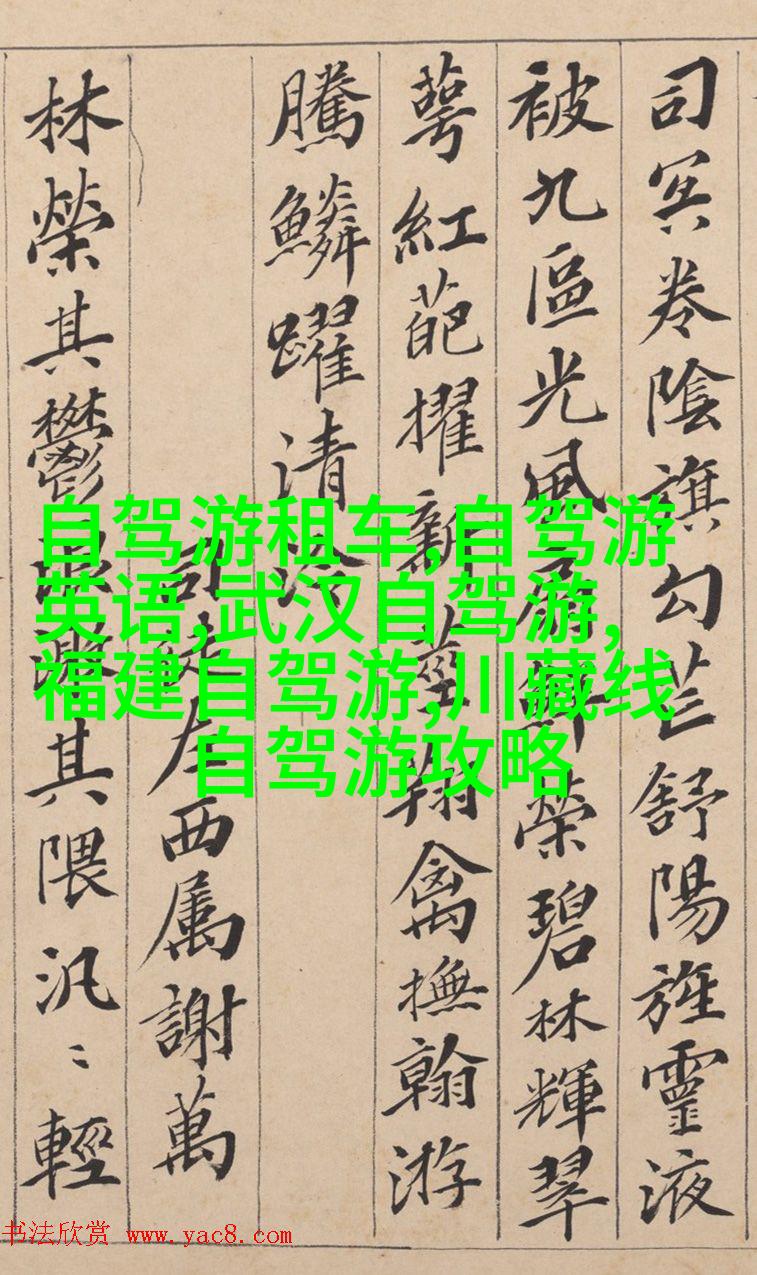 司冥卷陰旗勾芒舒陽旌靈液
被九區光風扇鮮榮碧林輝翠
萼紅葩擢新莖翔禽撫翰游
騰鱗躍清泠
司徒左西属謝萬
林榮其鬱浪激其隈汎〻輕
自驾游租车,自驾游
英语,武汉自驾游,
福建自驾游,川藏线
自驾游攻略
书法欣赏 www.yac8.com